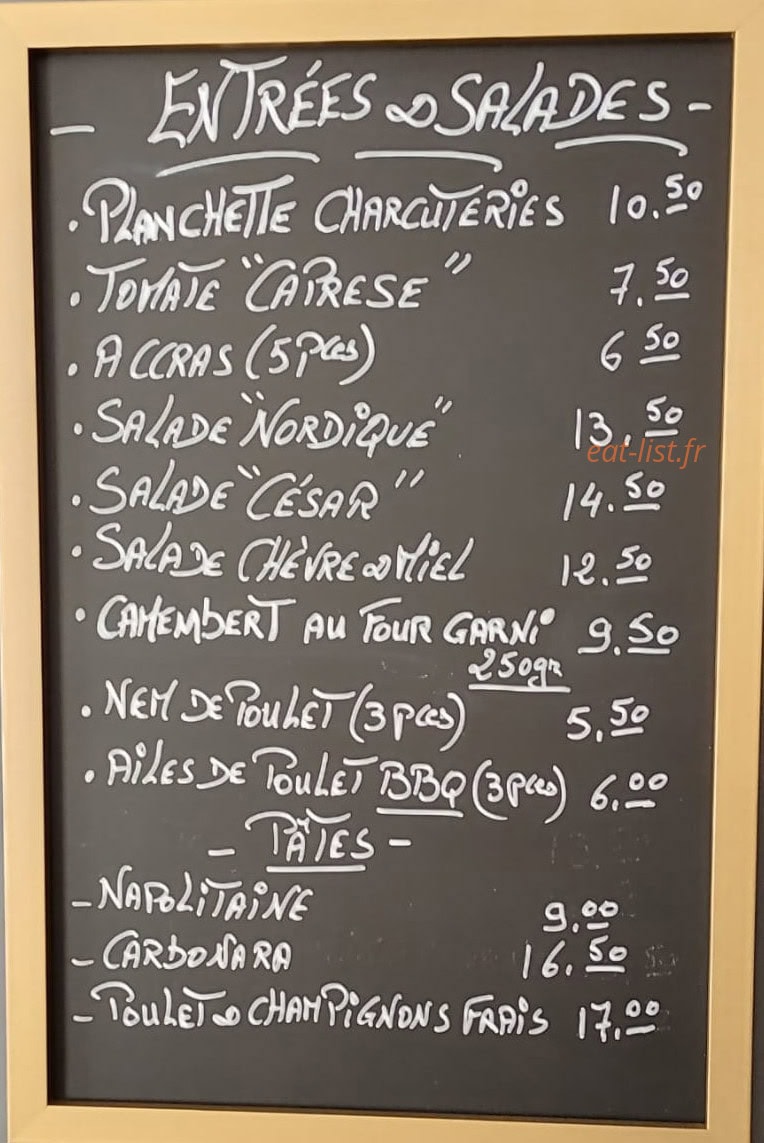 - ENTRÉES & SALADES -
• PLANCHETTE CHARCUTERIES 10.50
• TOMATE "CAPRESE" 7.50
• ACCRAS (5 pces) 6 50
• SALADE "NORDIQUE" 13.50
eat-list.fr
• SALADE "CÉSAR" 14.50
• SALADE CHÈVRE & MIEL 12.50
• CAMEMBERT AU FOUR GARNI 9.50
250gr
• NEM DE POULET (3 pces) 5,50
• AILES DE POULET BBQ (3 pces) 6.00
- PÂTES -
- NAPOLITAINE 9.00
- CARBONARA 16.50
- POULET & CHAMPIGNONS FRAIS 17.00